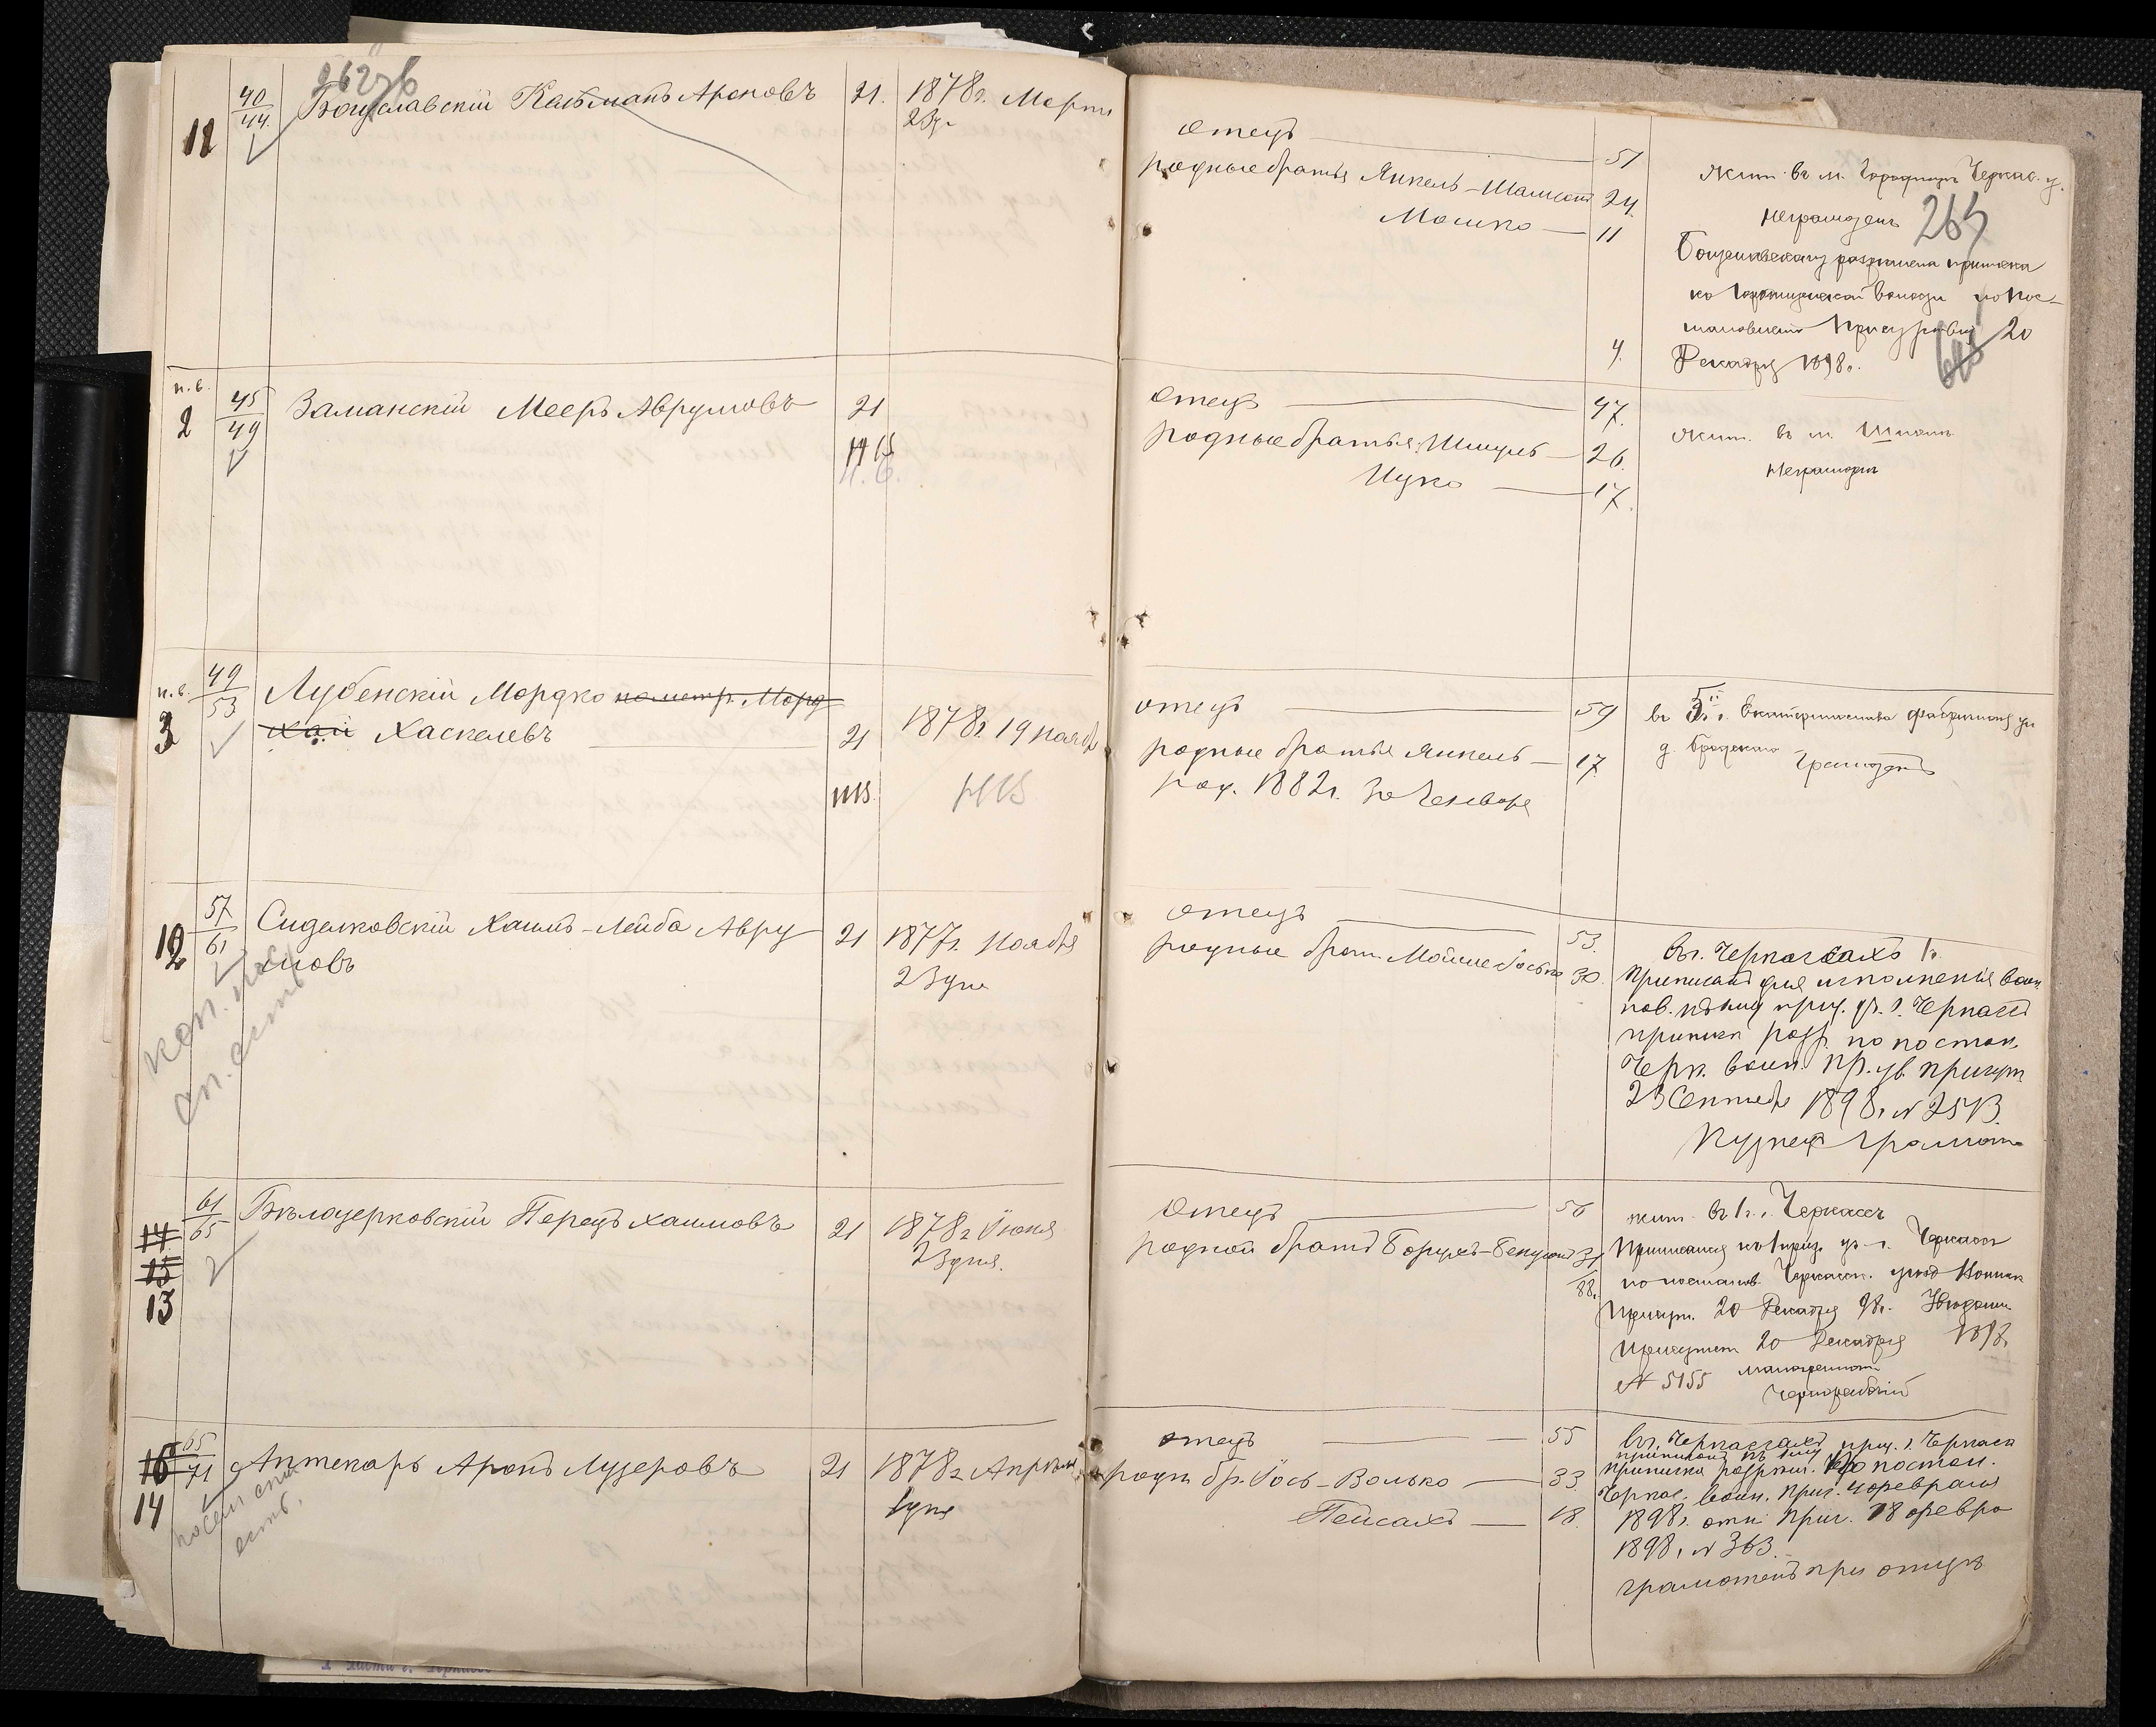 262 об
11
40
44
Богуславскій Кальманъ Ароновъ
21.
1878 г. Марта
23 д.
отецъ
51
родные братья Янкель-Шамсонъ
24.
Мошко
11
4.
жит. въ м. Городищѣ Черкас. у.
неграмотенъ
263
ко Городищенской волости по пос-
тановленію Присутствія 20
Декабря 1898 г.
н. в.
2
45
49
Заманскій Мееръ Аврумовъ
21
Н. В.
отецъ
47.
родные братья: Шмуль
26.
Ицко
17.
жит. въ м. Шполѣ
Неграмотн
н. в.
3
49
53
Лубенскій Мордко по метр. Морд
хай Хаскелевъ
21
1878 г. 19 ноября
отецъ
59
родные братья Янкель
17
род. 1882 г. 30 Генваря
въ г. Екатеринослава Фабричная ул
д. Бродскаго
Грамотенъ
12
57
61
Сидельковскій Хаимъ-Лейба Авру
мовъ
21
1877 г. Ноября
23 дня
отецъ
53.
родные брат. Мойше Іосько
30.
въ г. Черкассахъ
Приписанъ для исполненія воин.
пов. къ приз. уч. г. Черкассъ
приписка разр. по постан.
Черк. воин. пр. ув. присут
23 Сентября 1898 г. № 2513.
Кузнец грамотн
14
15
13
61
65
Бѣлоцерковскій Перецъ Хаимовъ
21
1878 г Іюня
23 дня.
отецъ
56
родной братъ Борухъ-Бенціонъ
31
жит. въ г. Черкассы
Приписанъ къ 1 приз. уч. г. Черкассы
по постанов. Черкасск. уѣзд Воинск
Присут. 20 Декабря 98 г.
Присутст 20 Декабря 1898
№ 5155
Малограмотн
Чернорабочій
16
14
65
71
Аптекарь Аронъ Лузеровъ
21
1878 г Апрѣля
1 дня
отецъ
55
родн бр. Іось-Волько
33.
Пейсахъ
18.
въ г. Черкассахъ приц. г. Черкасы
приписка разрѣш. по постан.
Черкас. воин. прис. 4 февраля
1898 г. отн. прис. 18 февра
1898 г № 363.
грамотенъ при отцѣ